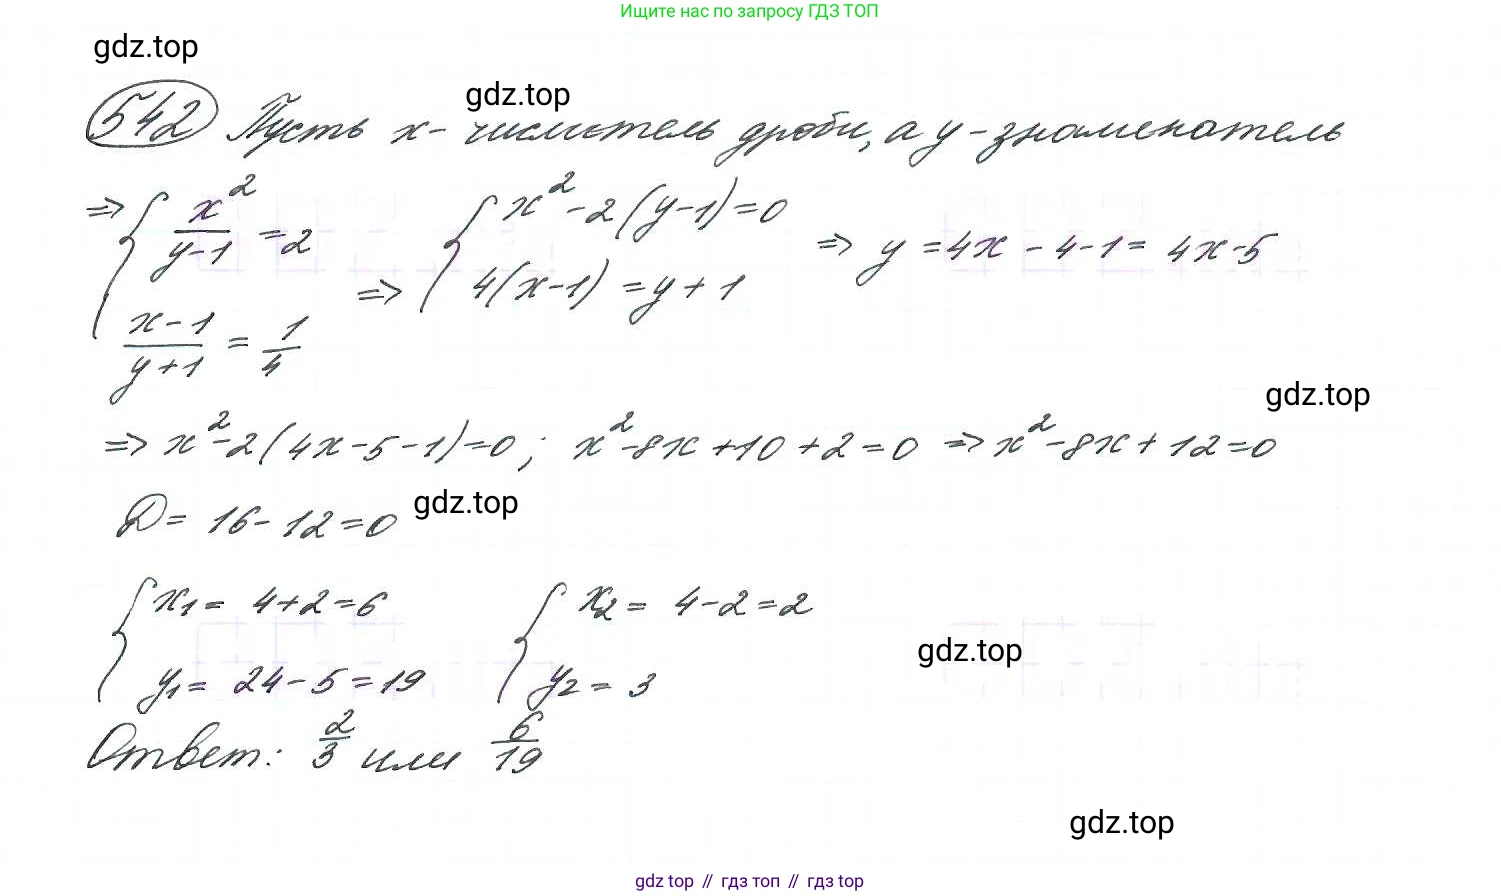 Ищите нас по запросу ГДЗ ТОП
gdz.top
gdz.top
542 Пусть x - числитель дроби, а y - знаменатель
=> { x²/(y-1) = 2 => { x² - 2(y-1) = 0 => y = 4x - 4 - 1 = 4x - 5
(x-1)/(y+1) = 1/4 4(x-1) = y + 1
gdz.top
=> x² - 2(4x - 5 - 1) = 0 ; x² - 8x + 10 + 2 = 0 => x² - 8x + 12 = 0
D = 16 - 12 = 0
gdz.top
{ x₁ = 4 + 2 = 6 { x₂ = 4 - 2 = 2
y₁ = 24 - 5 = 19 y₂ = 3
gdz.top
Ответ: 2/3 или 6/19
gdz.top
gdz top // гдз топ // гдз top